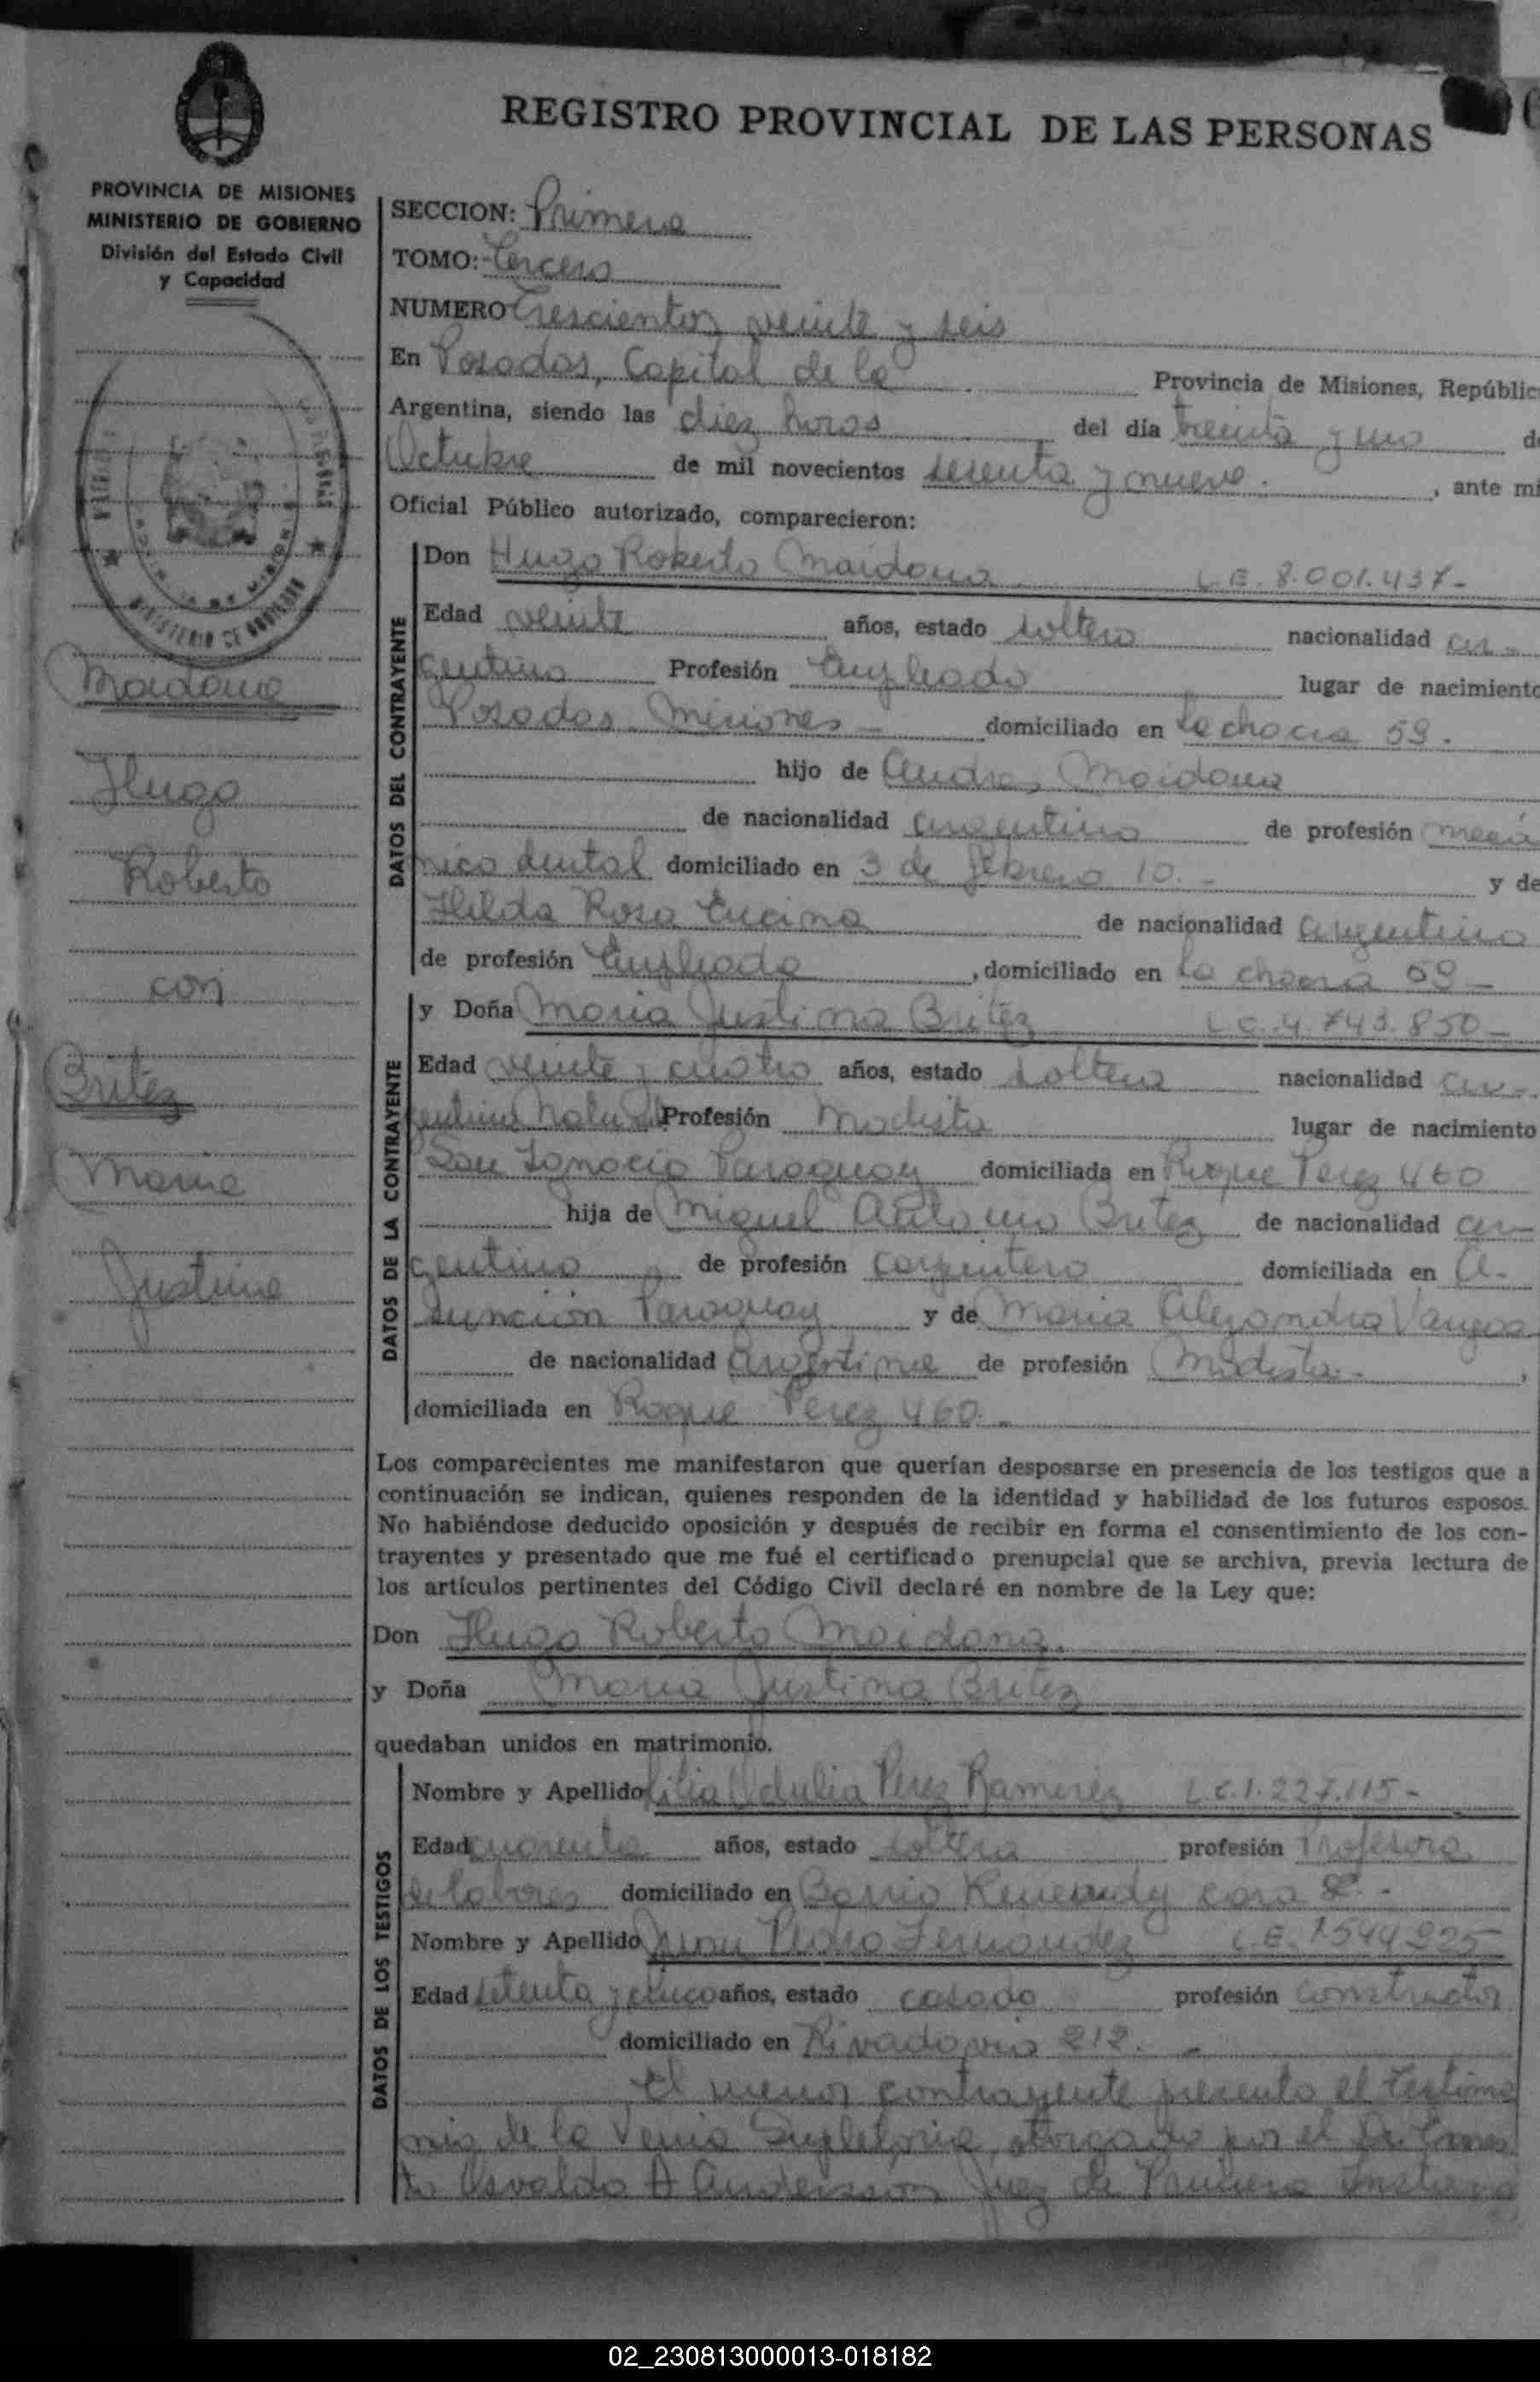 REGISTRO PROVINCIAL DE LAS PERSONAS
PROVINCIA DE MISIONES
MINISTERIO DE GOBIERNO
División del Estado Civil
y Capacidad
SECCION: Primera
TOMO: Tercero
NUMERO Trescientos veinte y seis
En Posadas, Capital de la Provincia de Misiones, Repúblic
Argentina, siendo las diez horas del día treinta y uno d
Octubre de mil novecientos sesenta y nueve. , ante mi
Oficial Público autorizado, comparecieron:
DATOS DEL CONTRAYENTE
Don Hugo Roberto Maidana L.E. 8.001.437-
Edad veinte años, estado soltero nacionalidad ar-
gentino Profesión Empleado lugar de nacimiento
Posadas Misiones - domiciliado en La chacra 59.
hijo de Andres Maidana
de nacionalidad argentino de profesión mecá
nico dental domiciliado en 3 de febrero 10.- y de
Hilda Rosa Encina de nacionalidad argentina
de profesión Empleada , domiciliado en La chacra 59-
DATOS DE LA CONTRAYENTE
y Doña Maria Justina Britez L.C. 4.743.850-
Edad veinte y cuatro años, estado soltera nacionalidad ar-
gentina Profesión Modista lugar de nacimiento
San Ignacio Paraguay domiciliada en Roque Perez 460
hija de Miguel Antonio Britez de nacionalidad ar-
gentino de profesión carpintero domiciliada en A-
sunción Paraguay y de Maria Alejandra Vargas
de nacionalidad Argentina de profesión Modista. ,
domiciliada en Roque Perez 460.-
Los comparecientes me manifestaron que querían desposarse en presencia de los testigos que a
continuación se indican, quienes responden de la identidad y habilidad de los futuros esposos.
No habiéndose deducido oposición y después de recibir en forma el consentimiento de los con-
trayentes y presentado que me fué el certificado prenupcial que se archiva, previa lectura de
los artículos pertinentes del Código Civil declaré en nombre de la Ley que:
Don Hugo Roberto Maidana.
y Doña Maria Justina Britez
quedaban unidos en matrimonio.
DATOS DE LOS TESTIGOS
Nombre y Apellido Lilia Perez Ramirez L.C. 1.227.115-
Edad cuarenta años, estado soltera profesión Profesora
de labores domiciliado en Barrio Kennedy casa
Nombre y Apellido Juan Pedro Fernandez L.E.
Edad setenta y cinco años, estado casado profesión Constructor
domiciliado en Rivadavia 212.-
El menor contrayente presento el testimo
nio de la Venia Supletoria otorgado por el Dr. Ernes
to Osvaldo A Anderson Juez de Primera Instancia
Maidana
Hugo
Roberto
con
Britez
Maria
Justina
02_230813000013-018182